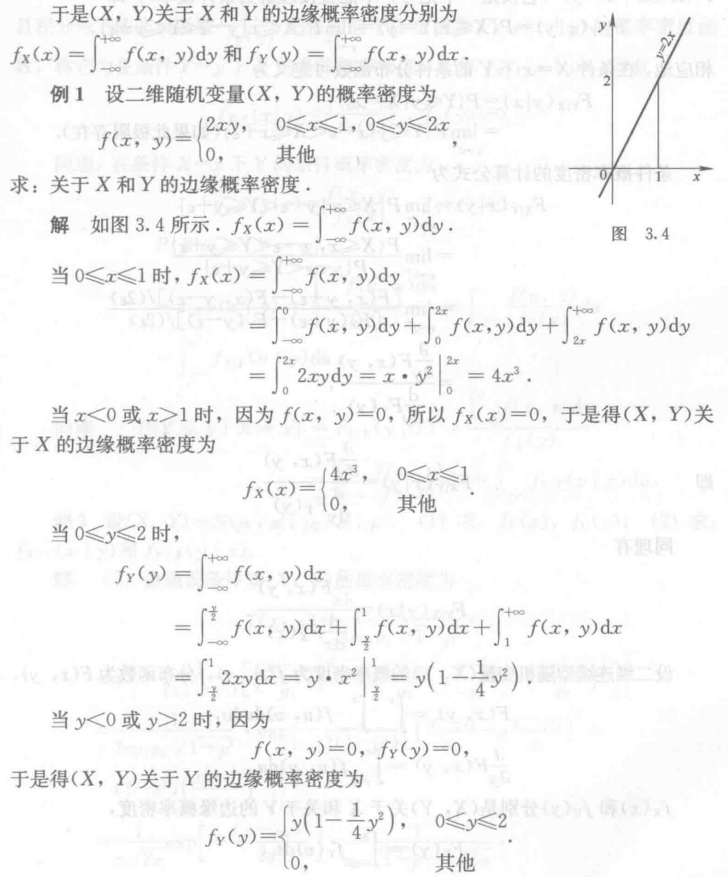 于是(X, Y)关于 X 和 Y 的边缘概率密度分别为
f_X(x)=∫_{-∞}^{+∞} f(x, y)dy 和 f_Y(y)=∫_{-∞}^{+∞} f(x, y)dx.
例 1 设二维随机变量(X, Y)的概率密度为
f(x, y)={2xy, 0≤x≤1, 0≤y≤2x,
0, 其他
求：关于 X 和 Y 的边缘概率密度.
解 如图 3.4 所示. f_X(x)=∫_{-∞}^{+∞} f(x, y)dy.
当 0≤x≤1 时, f_X(x)=∫_{-∞}^{+∞} f(x, y)dy
=∫_{-∞}^{0} f(x, y)dy+∫_{0}^{2x} f(x,y)dy+∫_{2x}^{+∞} f(x, y)dy
=∫_{0}^{2x} 2xydy=x·y²|_{0}^{2x}=4x³.
当 x<0 或 x>1 时, 因为 f(x, y)=0, 所以 f_X(x)=0, 于是得(X, Y)关
于 X 的边缘概率密度为
f_X(x)={4x³, 0≤x≤1
0, 其他.
当 0≤y≤2 时,
f_Y(y)=∫_{-∞}^{+∞} f(x, y)dx
=∫_{-∞}^{y/2} f(x, y)dx+∫_{y/2}^{1} f(x, y)dx+∫_{1}^{+∞} f(x, y)dx
=∫_{y/2}^{1} 2xydx=y·x²|_{y/2}^{1}=y(1-1/4 y²).
当 y<0 或 y>2 时, 因为
f(x, y)=0, f_Y(y)=0,
于是得(X, Y)关于 Y 的边缘概率密度为
f_Y(y)={y(1-1/4 y²), 0≤y≤2
0, 其他.
y
y=2x
2
0
1
x
图 3.4